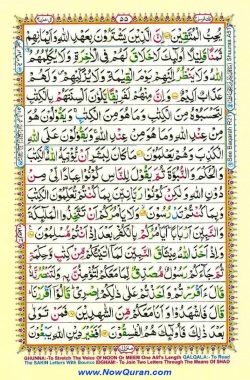 ۵۵
يُحِبُّ الْمُتَّقِيْنَ ۞ اِنَّ الَّذِيْنَ يَشْتَرُوْنَ بِعَهْدِ اللّٰهِ وَاَيْمَانِهِمْ
ثَمَنًا قَلِيْلًا اُولٰٓئِكَ لَا خَلَاقَ لَهُمْ فِي الْاٰخِرَةِ وَلَا يُكَلِّمُهُمُ
اللّٰهُ وَلَا يَنْظُرُ اِلَيْهِمْ يَوْمَ الْقِيٰمَةِ وَلَا يُزَكِّيْهِمْ وَلَهُمْ
عَذَابٌ اَلِيْمٌ ۞ وَاِنَّ مِنْهُمْ لَفَرِيْقًا يَّلْوٗنَ اَلْسِنَتَهُمْ بِالْكِتٰبِ
لِتَحْسَبُوْهُ مِنَ الْكِتٰبِ وَمَا هُوَ مِنَ الْكِتٰبِ وَيَقُوْلُوْنَ هُوَ
مِنْ عِنْدِ اللّٰهِ وَمَا هُوَ مِنْ عِنْدِ اللّٰهِ وَيَقُوْلُوْنَ عَلَى اللّٰهِ
الْكَذِبَ وَهُمْ يَعْلَمُوْنَ ۞ مَا كَانَ لِبَشَرٍ اَنْ يُّؤْتِيَهُ اللّٰهُ
الْكِتٰبَ وَالْحُكْمَ وَالنُّبُوَّةَ ثُمَّ يَقُوْلَ لِلنَّاسِ كُوْنُوْا عِبَادًا لِّيْ مِنْ
دُوْنِ اللّٰهِ وَلٰكِنْ كُوْنُوْا رَبّٰنِيّٖنَ بِمَا كُنْتُمْ تُعَلِّمُوْنَ الْكِتٰبَ
وَبِمَا كُنْتُمْ تَدْرُسُوْنَ ۞ وَلَا يَاْمُرَكُمْ اَنْ تَتَّخِذُوا الْمَلٰٓئِكَةَ
وَالنَّبِيّٖنَ اَرْبَابًا اَيَاْمُرُكُمْ بِالْكُفْرِ بَعْدَ اِذْ اَنْتُمْ مُّسْلِمُوْنَ ۞
وَاِذْ اَخَذَ اللّٰهُ مِيْثَاقَ النَّبِيّٖنَ لَمَآ اٰتَيْتُكُمْ مِّنْ كِتٰبٍ وَّحِكْمَةٍ
ثُمَّ جَآءَكُمْ رَسُوْلٌ مُّصَدِّقٌ لِّمَا مَعَكُمْ لَتُؤْمِنُنَّ بِهٖ وَلَتَنْصُرُنَّهٗ
قَالَ ءَاَقْرَرْتُمْ وَاَخَذْتُمْ عَلٰى ذٰلِكُمْ اِصْرِيْ قَالُوْٓا اَقْرَرْنَا
قَالَ فَاشْهَدُوْا وَاَنَا مَعَكُمْ مِّنَ الشّٰهِدِيْنَ ۞ فَمَنْ تَوَلّٰى
بَعْدَ ذٰلِكَ فَاُولٰٓئِكَ هُمُ الْفٰسِقُوْنَ ۞ اَفَغَيْرَ دِيْنِ اللّٰهِ يَبْغُوْنَ
GHUNNA:-To Stretch The Voice Of NOON Or MEEM One Alif's Length QALQALA:- To Read
The SAKIN Letters With Bounce IDGHAM:- To Join Two Letters Through The Means Of SHAD
www.NowQuran.com